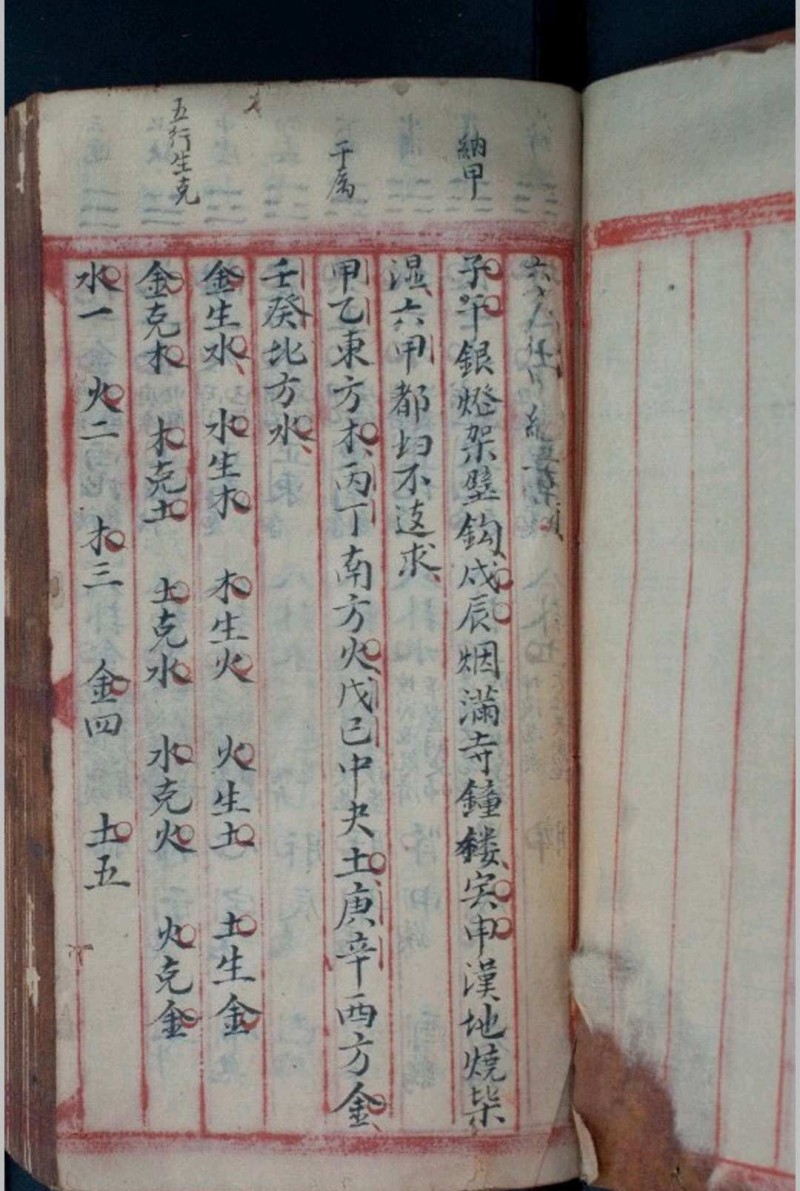 納甲
子午銀燈架壁鈎戍辰烟滿寺鐘鏤寅申漢地燒柴
濕六甲都均不這求
干属
甲乙東方木丙丁南方火戊己中央土庚辛西方金
壬癸北方水
五行生克
金生水 水生木 木生火 火生土 土生金
金克木 木克土 土克水 水克火 火克金
水一 火二 木三 金四 土五